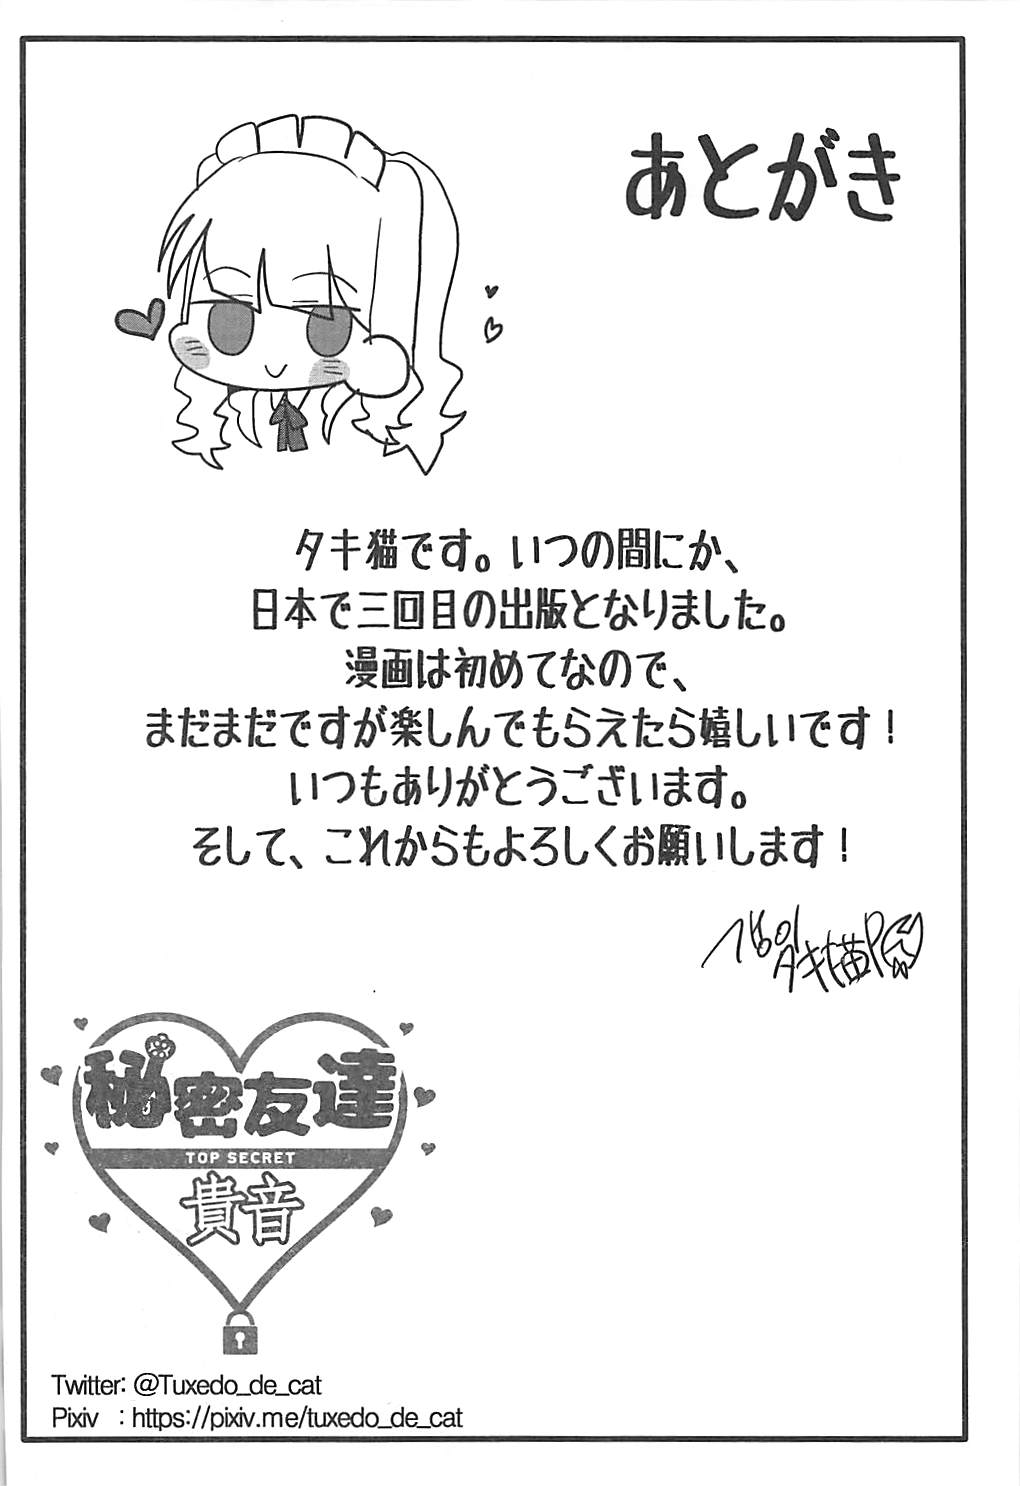 あとがき
タキ猫です。いつの間にか、
日本で三回目の出版となりました。
漫画は初めてなので、
まだまだですが楽しんでもらえたら嬉しいです！
いつもありがとうございます。
そして、これからもよろしくお願いします！
タキ猫P
秘密友達
TOP SECRET
貴音
Twitter: @Tuxedo_de_cat
Pixiv : https://pixiv.me/tuxedo_de_cat